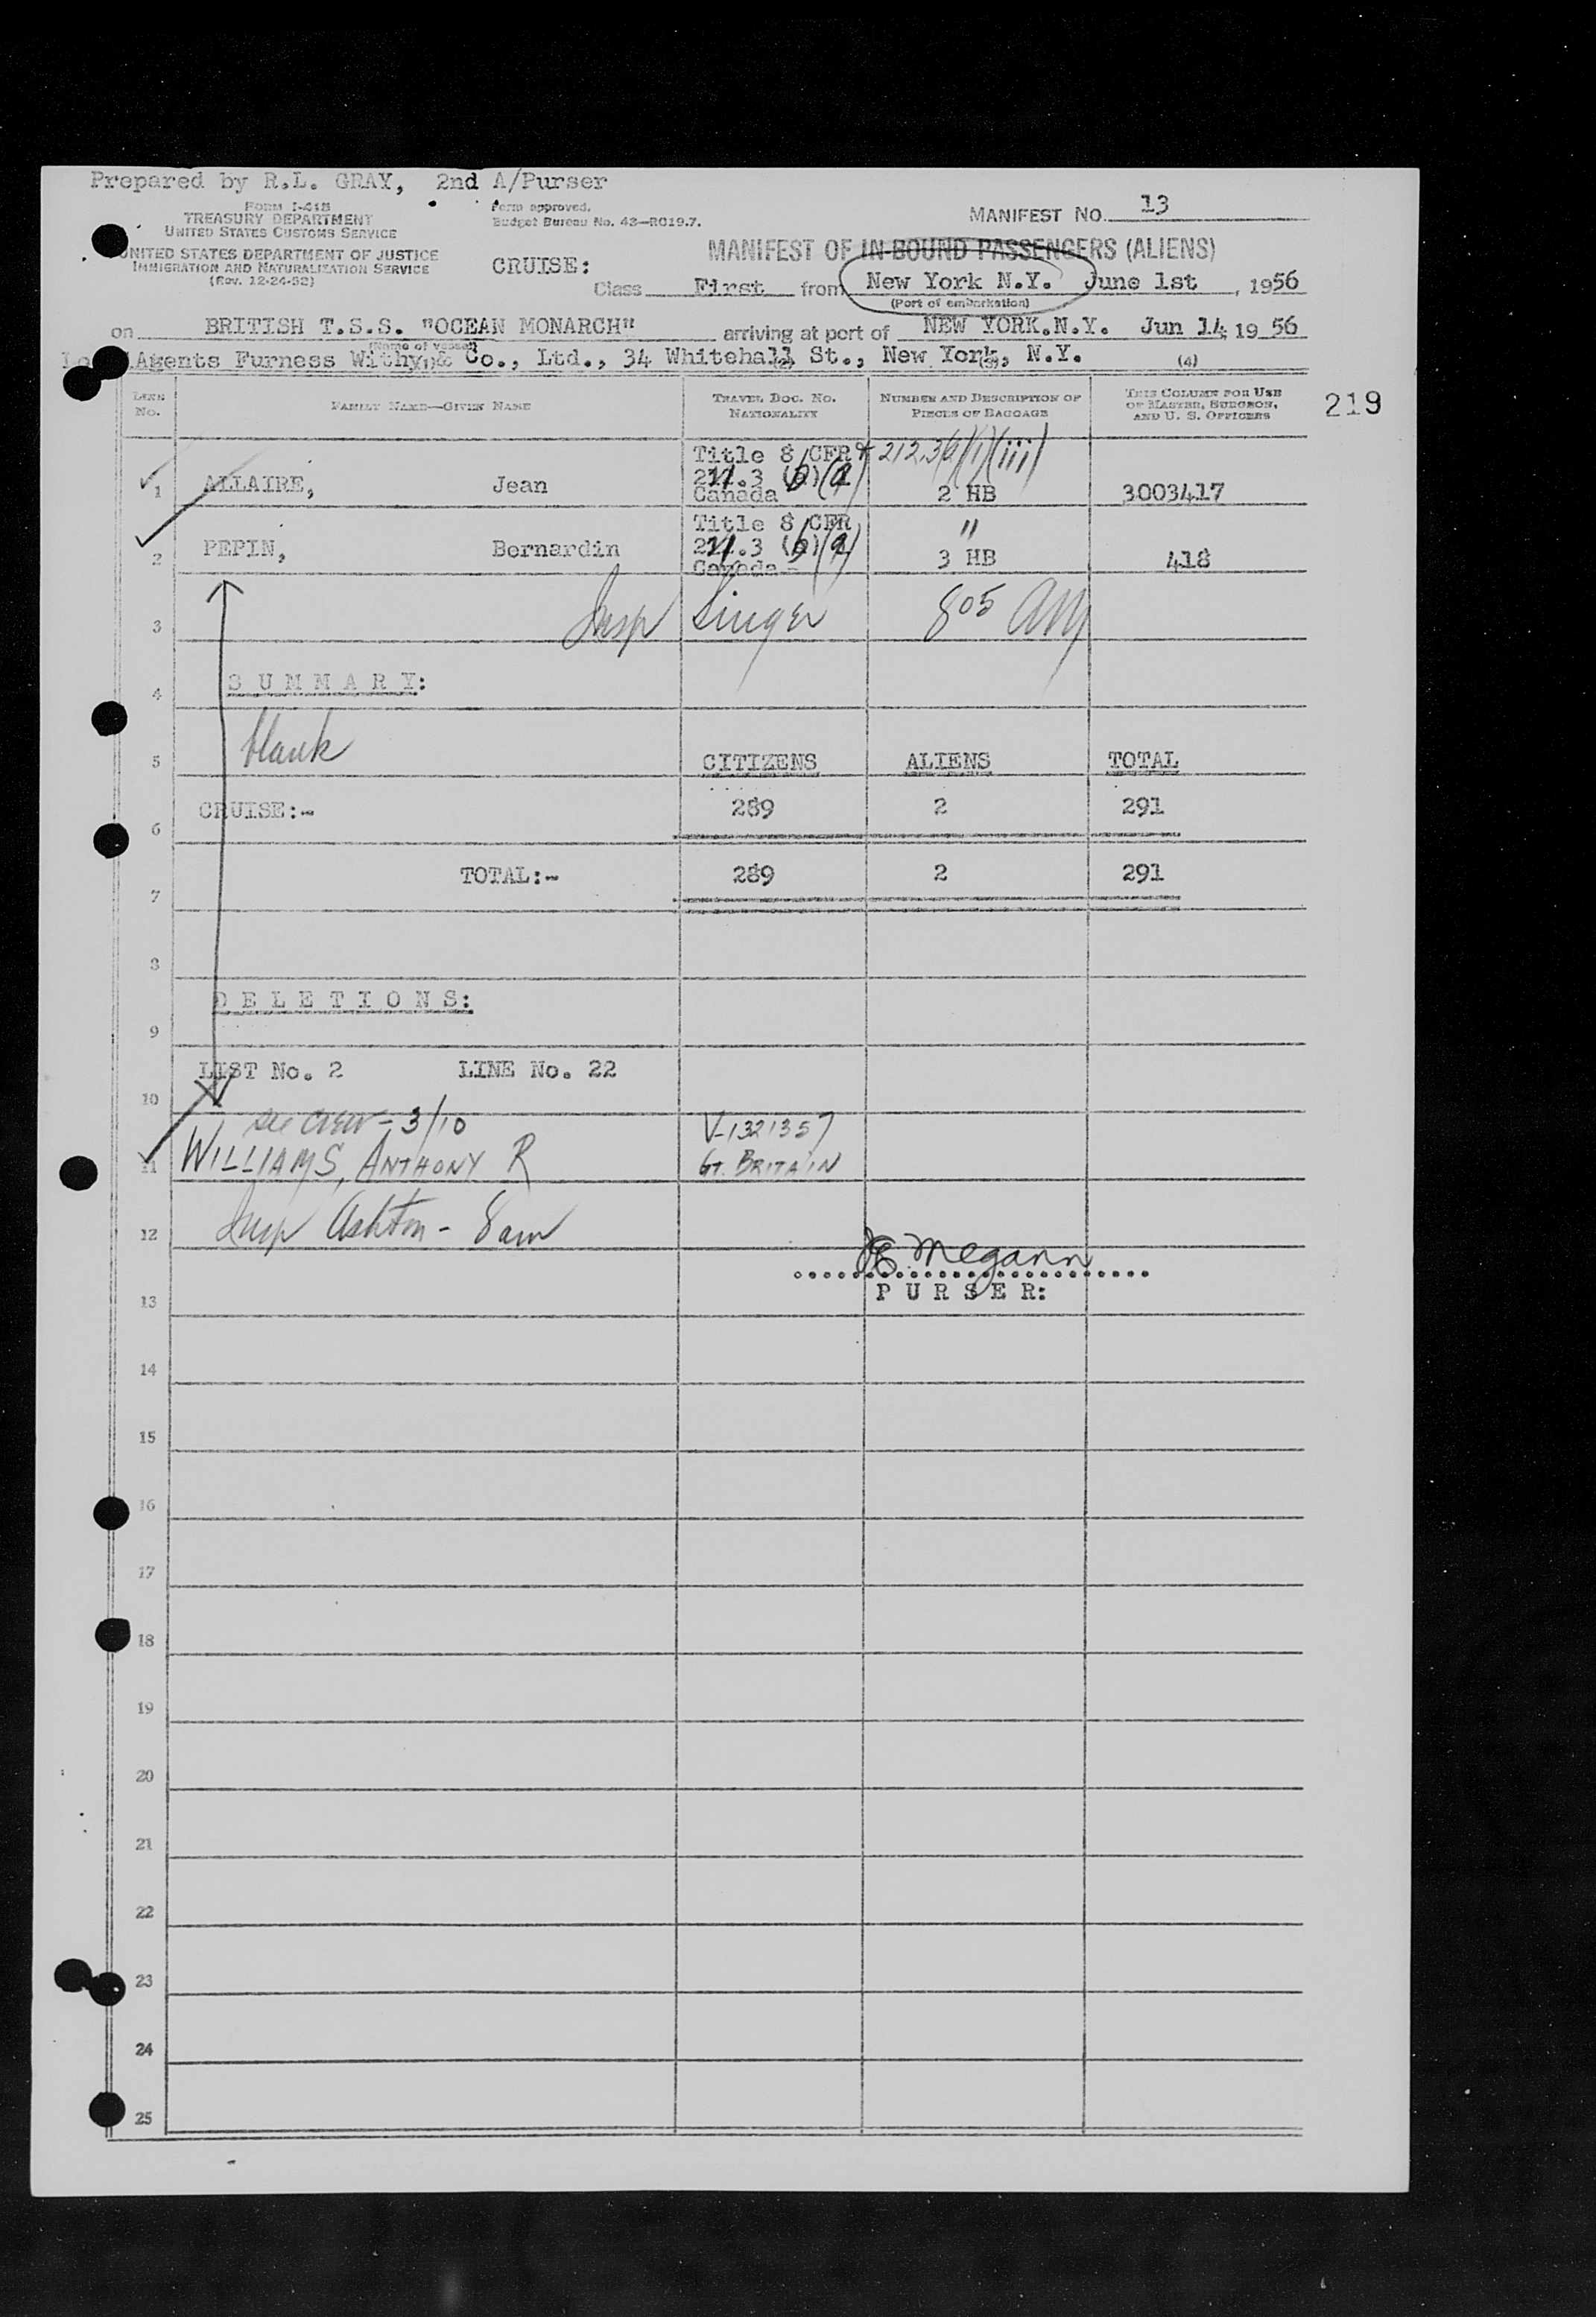 Prepared by R.L. GRAY, 2nd A/Purser
FORM I-418
TREASURY DEPARTMENT
UNITED STATES CUSTOMS SERVICE
UNITED STATES DEPARTMENT OF JUSTICE
IMMIGRATION AND NATURALIZATION SERVICE
(Rev. 12-24-52)
Form approved.
Budget Bureau No. 43—R019.7.
MANIFEST NO. 13
MANIFEST OF IN-BOUND PASSENGERS (ALIENS)
CRUISE:
Class First from New York N.Y. June 1st, 1956
(Port of embarkation)
on BRITISH T.S.S. "OCEAN MONARCH" arriving at port of NEW YORK.N.Y. Jun 14 19 56
(Name of vessel)
Agents Furness Withy & Co., Ltd., 34 Whitehall St., New York, N.Y.
(1) (2) (3) (4)
LINE No.
FAMILY NAME—GIVEN NAME
TRAVEL DOC. NO. NATIONALITY
NUMBER AND DESCRIPTION OF PIECES OF BAGGAGE
THIS COLUMN FOR USE OF MASTER, SURGEON, AND U. S. OFFICERS
219
Title 8 CFR & 212.3(a)(1)(iii)
211.3 (b)(a)
1 ALLAIRE, Jean Canada 2 HB 3003417
Title 8 CFR "
211.3 (b)(a)
2 PEPIN, Bernardin Canada 3 HB 418
3 Insp Singer 805 AM
4 SUMMARY:
5 blank CITIZENS ALIENS TOTAL
6 CRUISE:- 289 2 291
7 TOTAL:- 289 2 291
8
9 DELETIONS:
10 LIST No. 2 LINE No. 22
see crew - 3/10 V-1321357
11 WILLIAMS, ANTHONY R GT. BRITAIN
12 Insp Ashton - 8 am
JE Megann
PURSER:
13
14
15
16
17
18
19
20
21
22
23
24
25